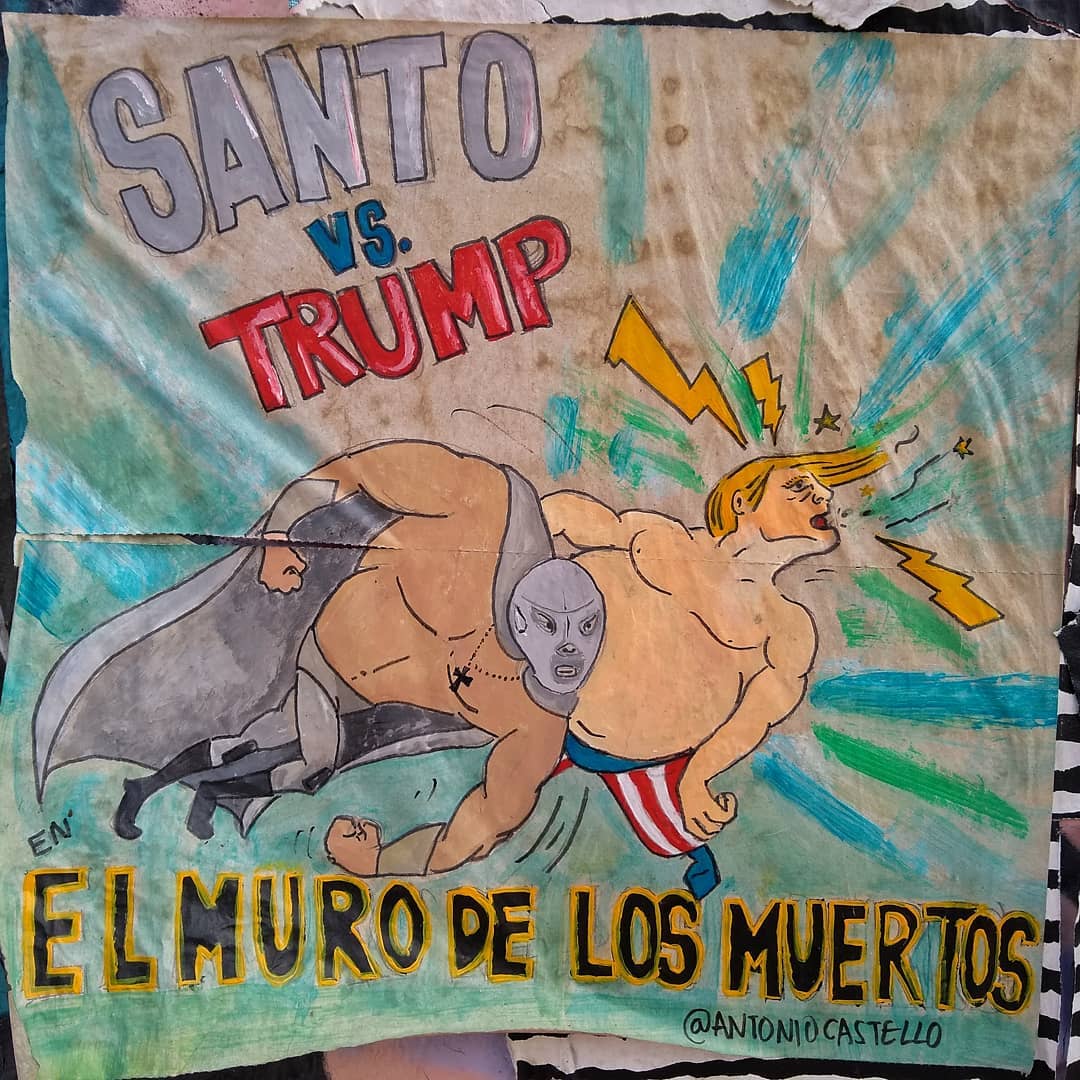 SANTO
VS.
TRUMP
EN
EL MURO DE LOS MUERTOS
@ANTONIOCASTELLO